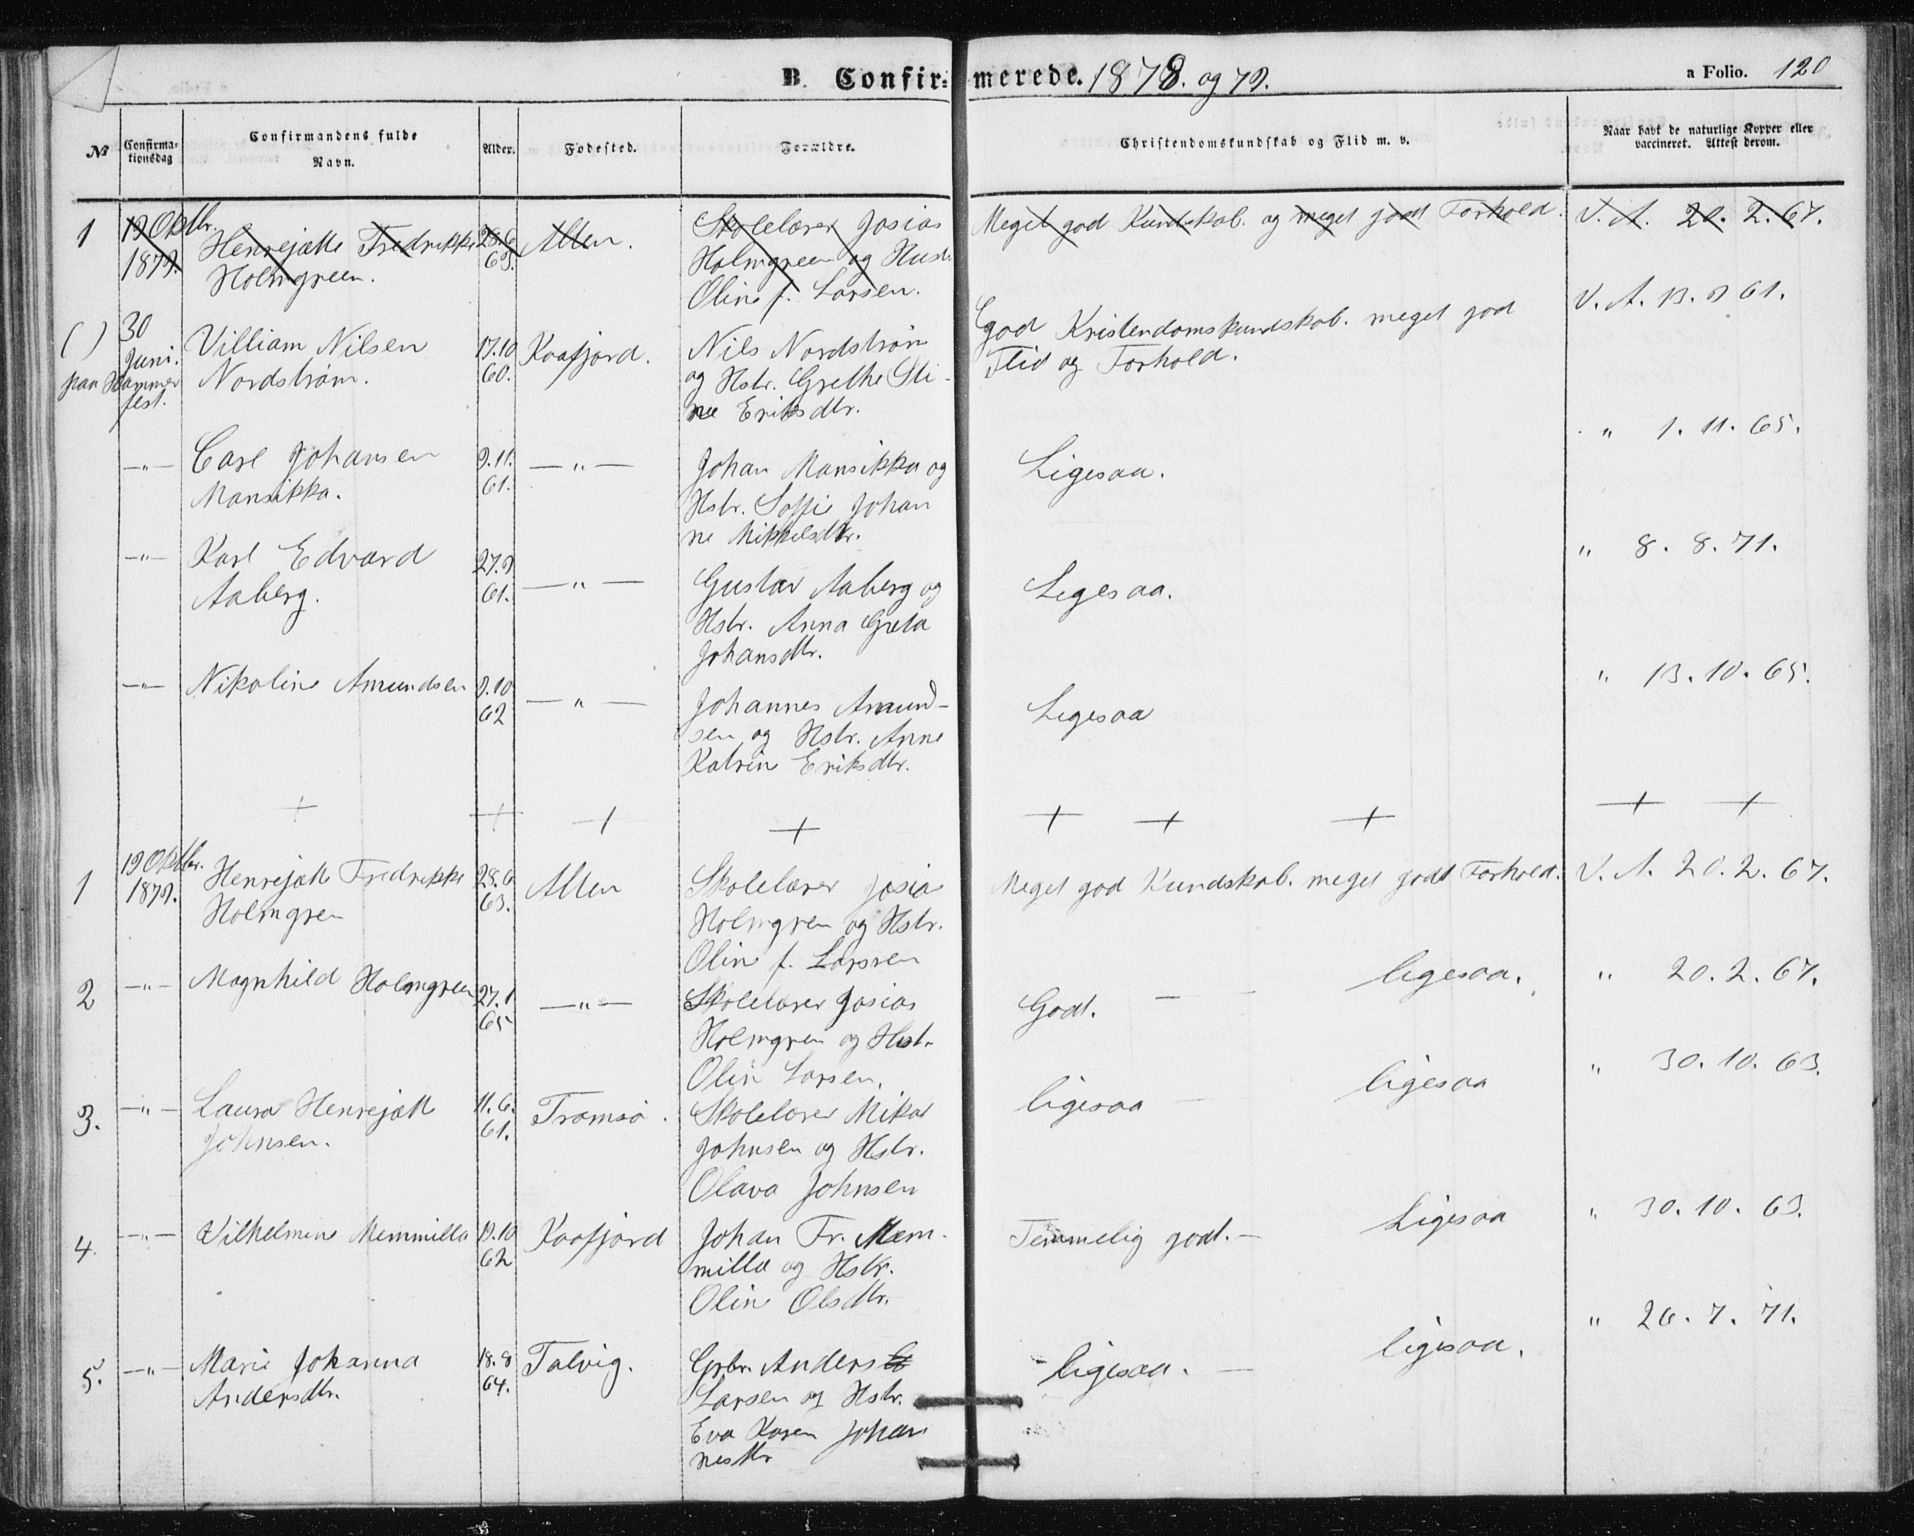 B. Confirmerede. 1878. og 79.
a Folio. 120
№
Confirmationsdag
Confirmandens fulde Navn.
Alder.
Fødested.
Forældre.
Christendomskundskab og Flid m. v.
Naar havt de naturlige Kopper eller vaccineret. Attest derom.
1
19 Oktbr. 1879.
Henrejætte Fredrikke
Holmgreen.
28.6 63.
Alten.
Skolelærer Josias
Holmgreen og Hustr.
Oline f. Larsen.
Meget god Kundskab. og meget godt Forhold.
V. A. 20. 2. 67.
( ) 30 Juni. paa Hammerfest.
Villiam Nilsen
Nordstrøm.
17.10 60.
Kaafjord.
Nils Nordstrøm
og Hstr. Grethe Sti-
ne Eriksdtr.
God Kristendomskundskab. meget god
Flid og Forhold.
V. A. 13. 9 61.
—„—
Carl Johansen
Mansikka.
9.11. 61.
—„—
Johan Mansikka og
Hstr. Soffie Johan
ne Mikkelsdtr.
Ligesaa.
„ 1. 11. 65.
—„—
Karl Edvard
Aaberg.
27.9 61.
—„—
Gustav Aaberg og
Hstr. Anna Greta
Johansdtr.
Ligesaa.
„ 8. 8. 71.
—„—
Nikoline Amundsen
9.10 62
—„—
Johannes Amund-
sen og Hstr. Anne
Katrin Eriksdtr.
Ligesaa
„ 13. 10. 65.
1
19 Oktbr. 1879.
Henrejætte Fredrikke
Holmgren
28.6 63.
Alten
Skolelærer Josias
Holmgren og Hstr.
Oline f. Larssen
Meget god Kundskab. meget godt Forhold.
V. A. 20. 2. 67.
2
—„—
Magnhild Holmgreen
27.1 65
—„—
Skolelærer Josias
Holmgren og Hstr.
Olin Larsen.
Godt. — — ligesaa.
„ 20. 2. 67.
3.
—„—
Laura Henrejætte
Johnsen.
11.6. 61.
Tromsø.
Skolelærer Mikal
Johnsen og Hstr.
Olava Johnsen
ligesaa — ligesaa
„ 30. 10. 63.
4.
—„—
Vilhelmine Memmilla
19.10 62
Kaafjord
Johan Fr. Mem-
milla og Hstr.
Oline Olsdtr.
Temmelig godt. — Ligesaa
„ 30. 10. 63.
5.
—„—
Marie Johanna
Andersdtr.
18.8 64.
Talvig.
Grbr. Anders
Larsen og Hstr.
Eva Karen Johan
nesdtr
ligesaa. — ligesaa.
„ 26. 7. 71.